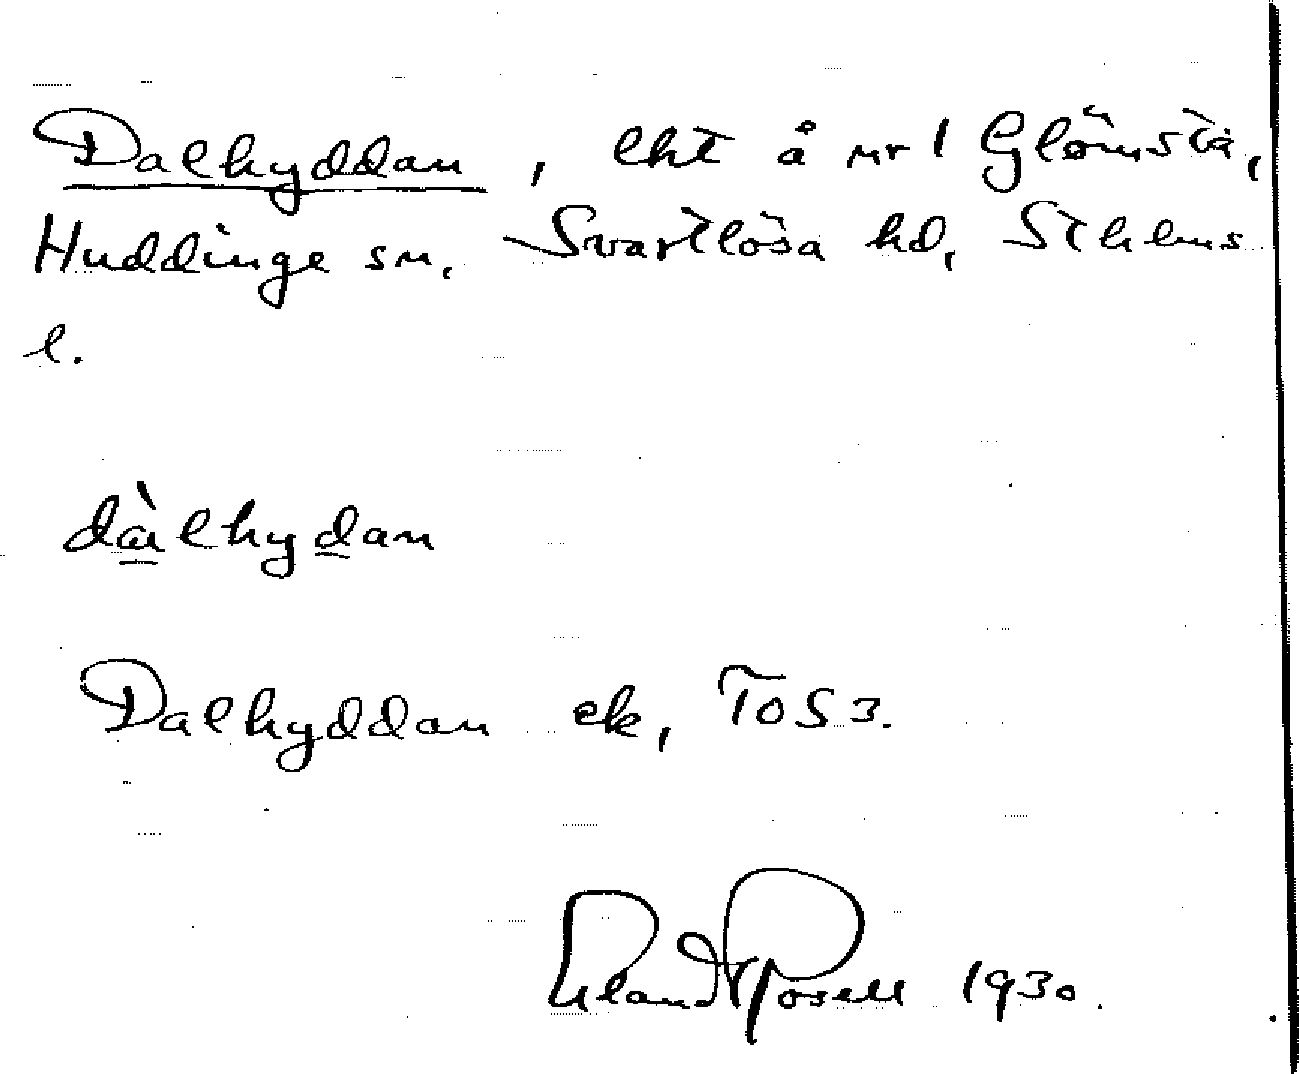 Dalkyddan, lht å nr 1 Glömsta,
Huddinge sn, Svartlösa hd, Sthlms
l.
dàlhydan
Dalhyddan ek, TOS 3.
Erland Rosell 1930.